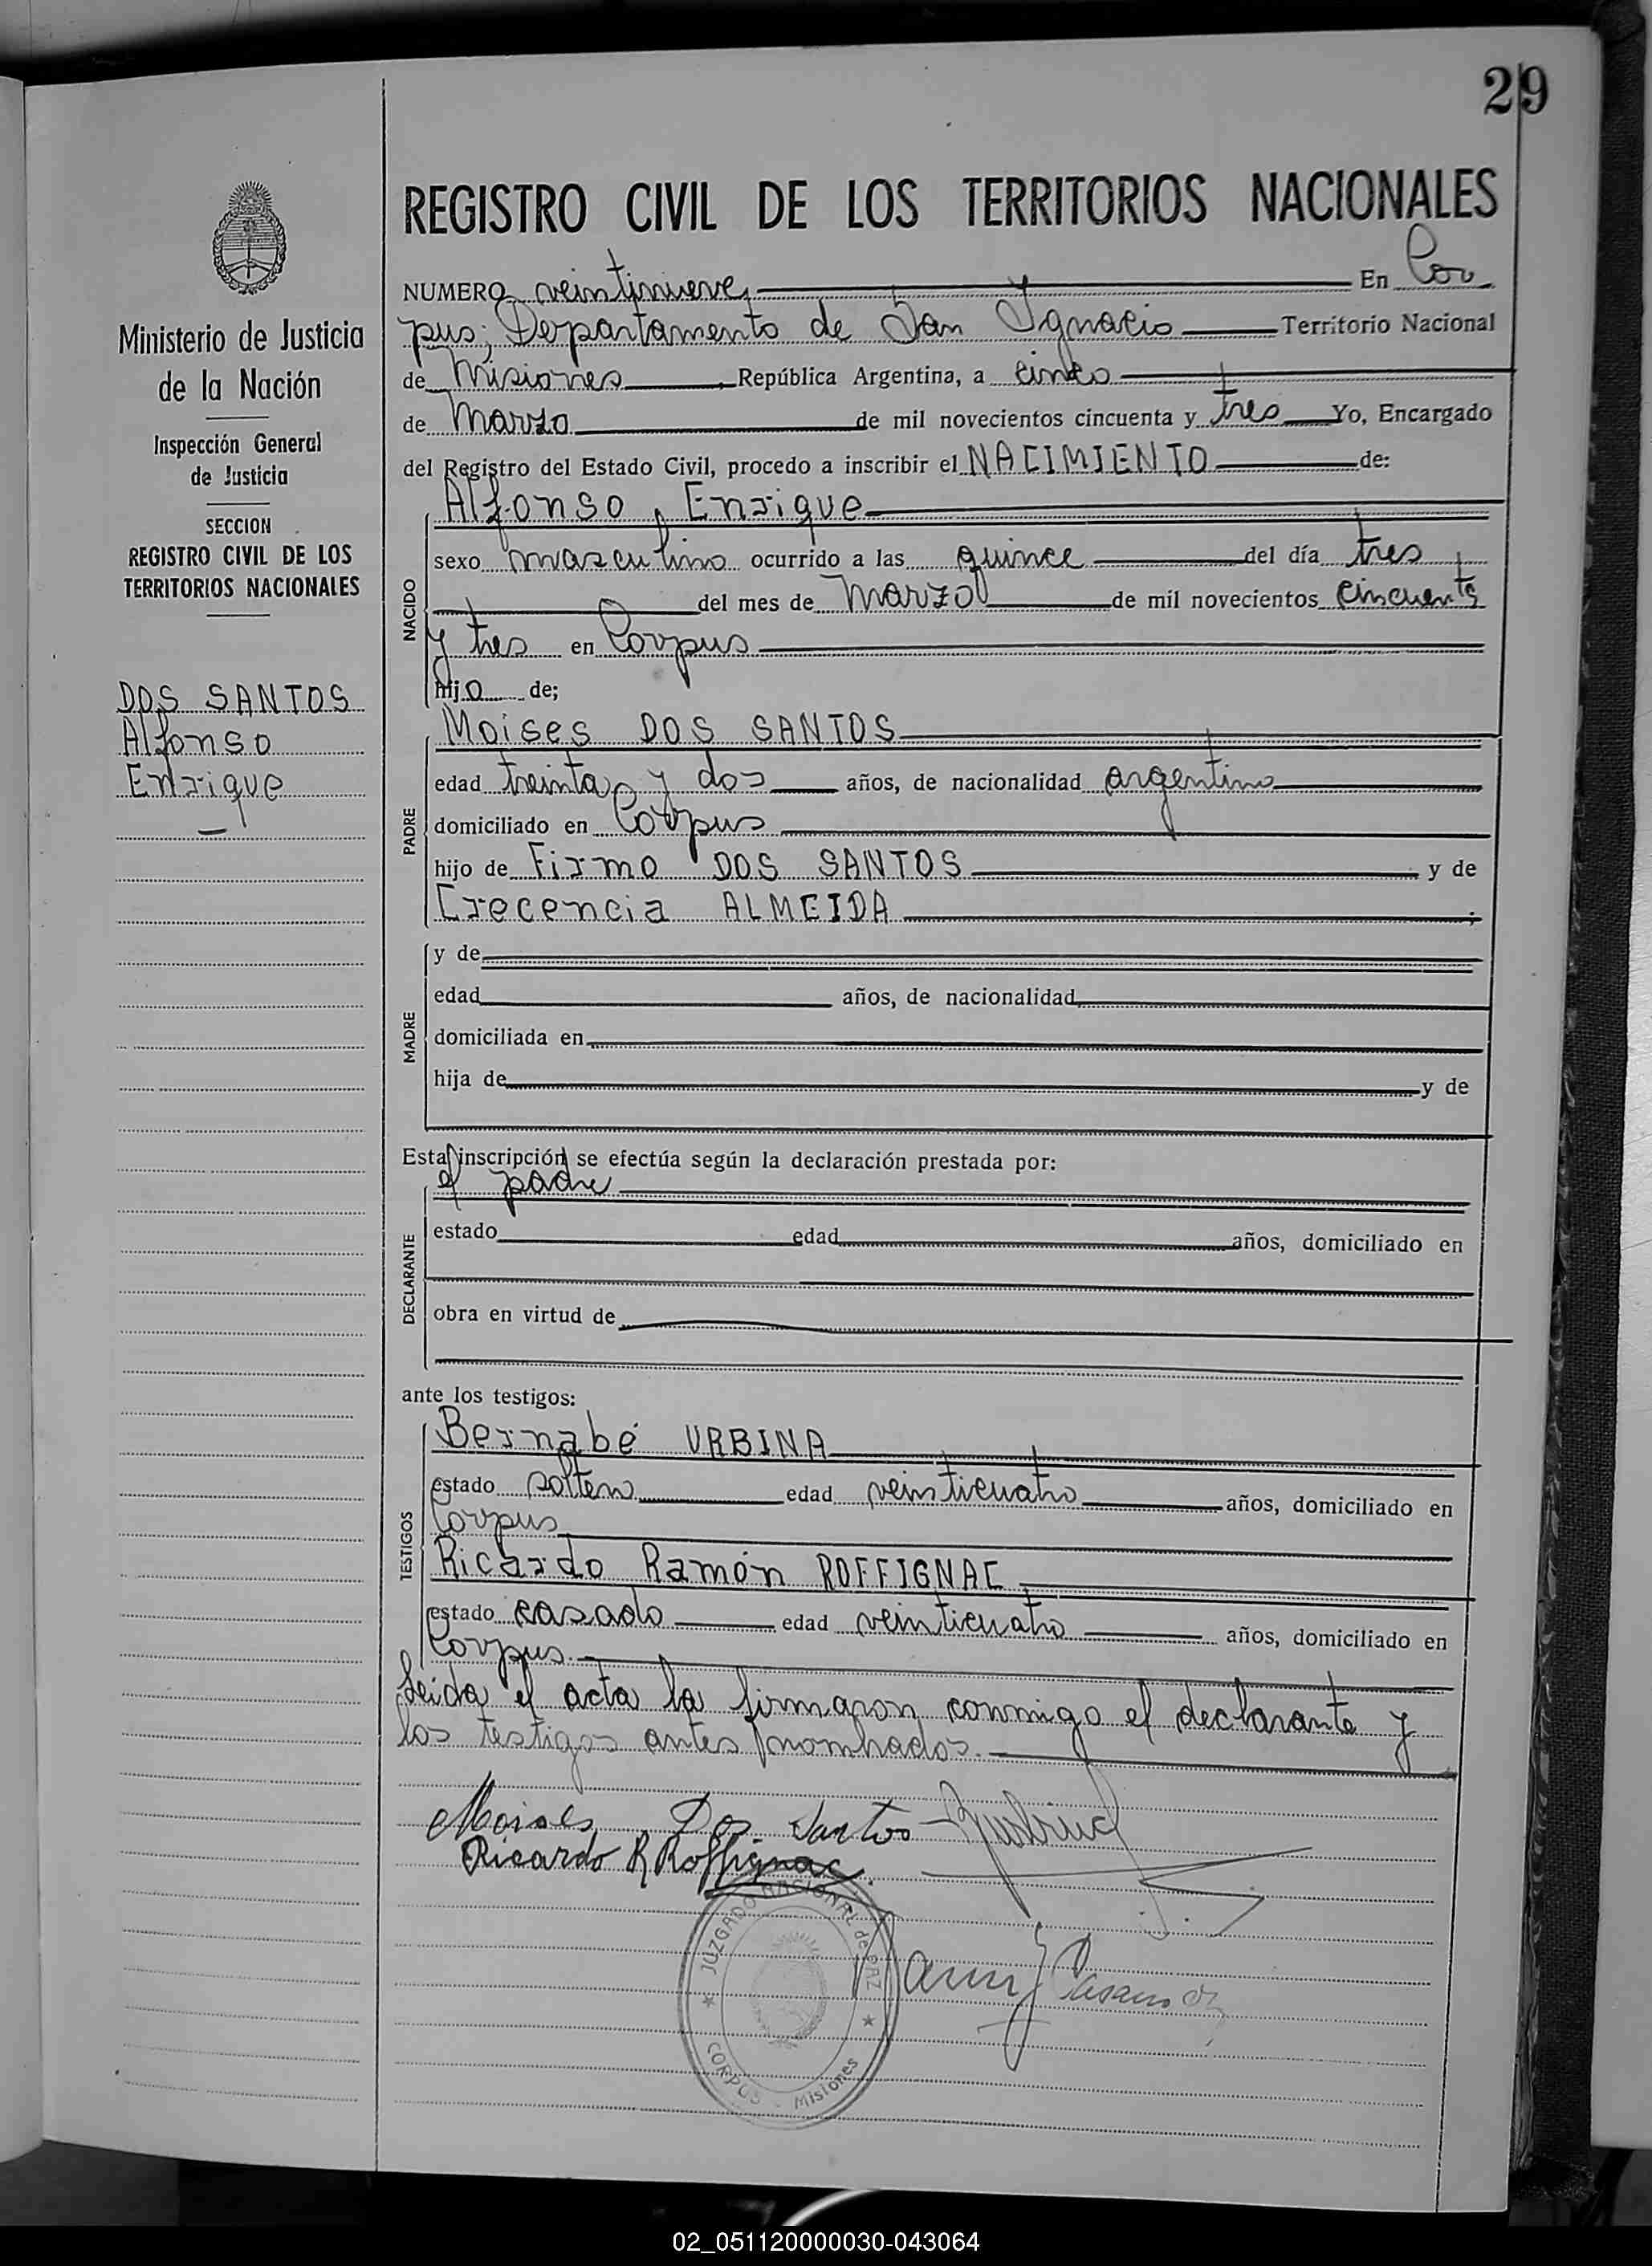 29
REGISTRO CIVIL DE LOS TERRITORIOS NACIONALES
NUMERO veintinueve En Cor
pus; Departamento de San Ignacio Territorio Nacional
de Misiones República Argentina, a cinco
de Marzo de mil novecientos cincuenta y tres Yo, Encargado
del Registro del Estado Civil, procedo a inscribir el NACIMIENTO de:
Alfonso Enrique
sexo masculino ocurrido a las quince del día tres
del mes de Marzo de mil novecientos cincuenta
y tres en Corpus
hijo de;
NACIDO
Moises DOS SANTOS
edad treinta y dos años, de nacionalidad argentino
domiciliado en Corpus
hijo de Firmo DOS SANTOS y de
Crecencia ALMEIDA ;
PADRE
y de
edad años, de nacionalidad
domiciliada en
hija de y de
MADRE
Esta inscripción se efectúa según la declaración prestada por:
el padre
estado edad años, domiciliado en
obra en virtud de
DECLARANTE
ante los testigos:
Bernabé URBINA
estado soltero edad veinticuatro años, domiciliado en
Corpus
Ricardo Ramón ROFFIGNAC
estado casado edad veinticuatro años, domiciliado en
Corpus.
TESTIGOS
Leida el acta la firmaron conmigo el declarante y
los testigos antes nombrados.
Moises Dos Santos
Ricardo R Roffignac
JUZGADO NACIONAL de PAZ
CORPUS - Misiones
Ministerio de Justicia
de la Nación
Inspección General
de Justicia
SECCION
REGISTRO CIVIL DE LOS
TERRITORIOS NACIONALES
DOS SANTOS
Alfonso
Enrique
02_051120000030-043064